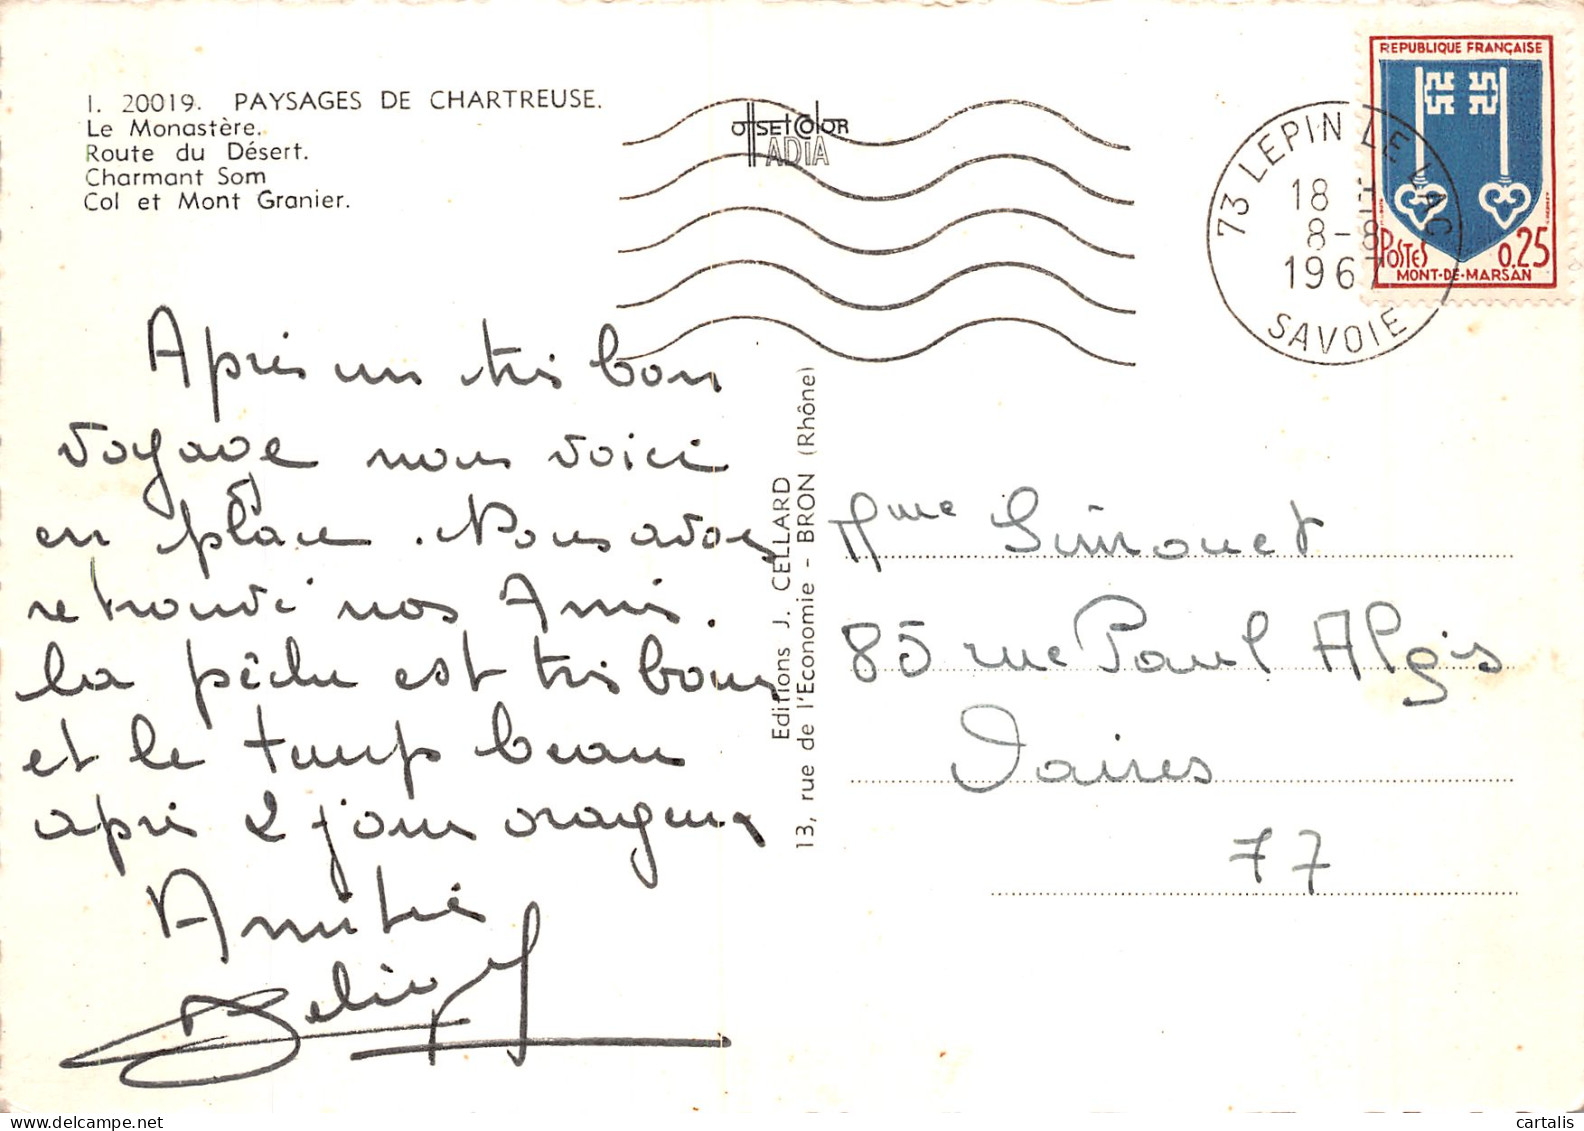 I. 20019. PAYSAGES DE CHARTREUSE.
Le Monastère.
Route du Désert.
Charmant Som
Col et Mont Granier.
OffSEt COlOR
ADIA
73 LEPIN LE LAC
18 H
8-8
1967
SAVOIE
REPUBLIQUE FRANÇAISE
POSTES 0,25
MONT-DE-MARSAN
Après un très bon
voyage nous voici
en place. Nous avons
retrouvé nos Amis.
La pêche est très bonne
et le temps beau
après 2 jours orageux
Amitié
Editions J. CELLARD
13, rue de l'Economie - BRON (Rhône)
Mme Simonet
85 rue Paul Algis
Vaires
77
cartalis